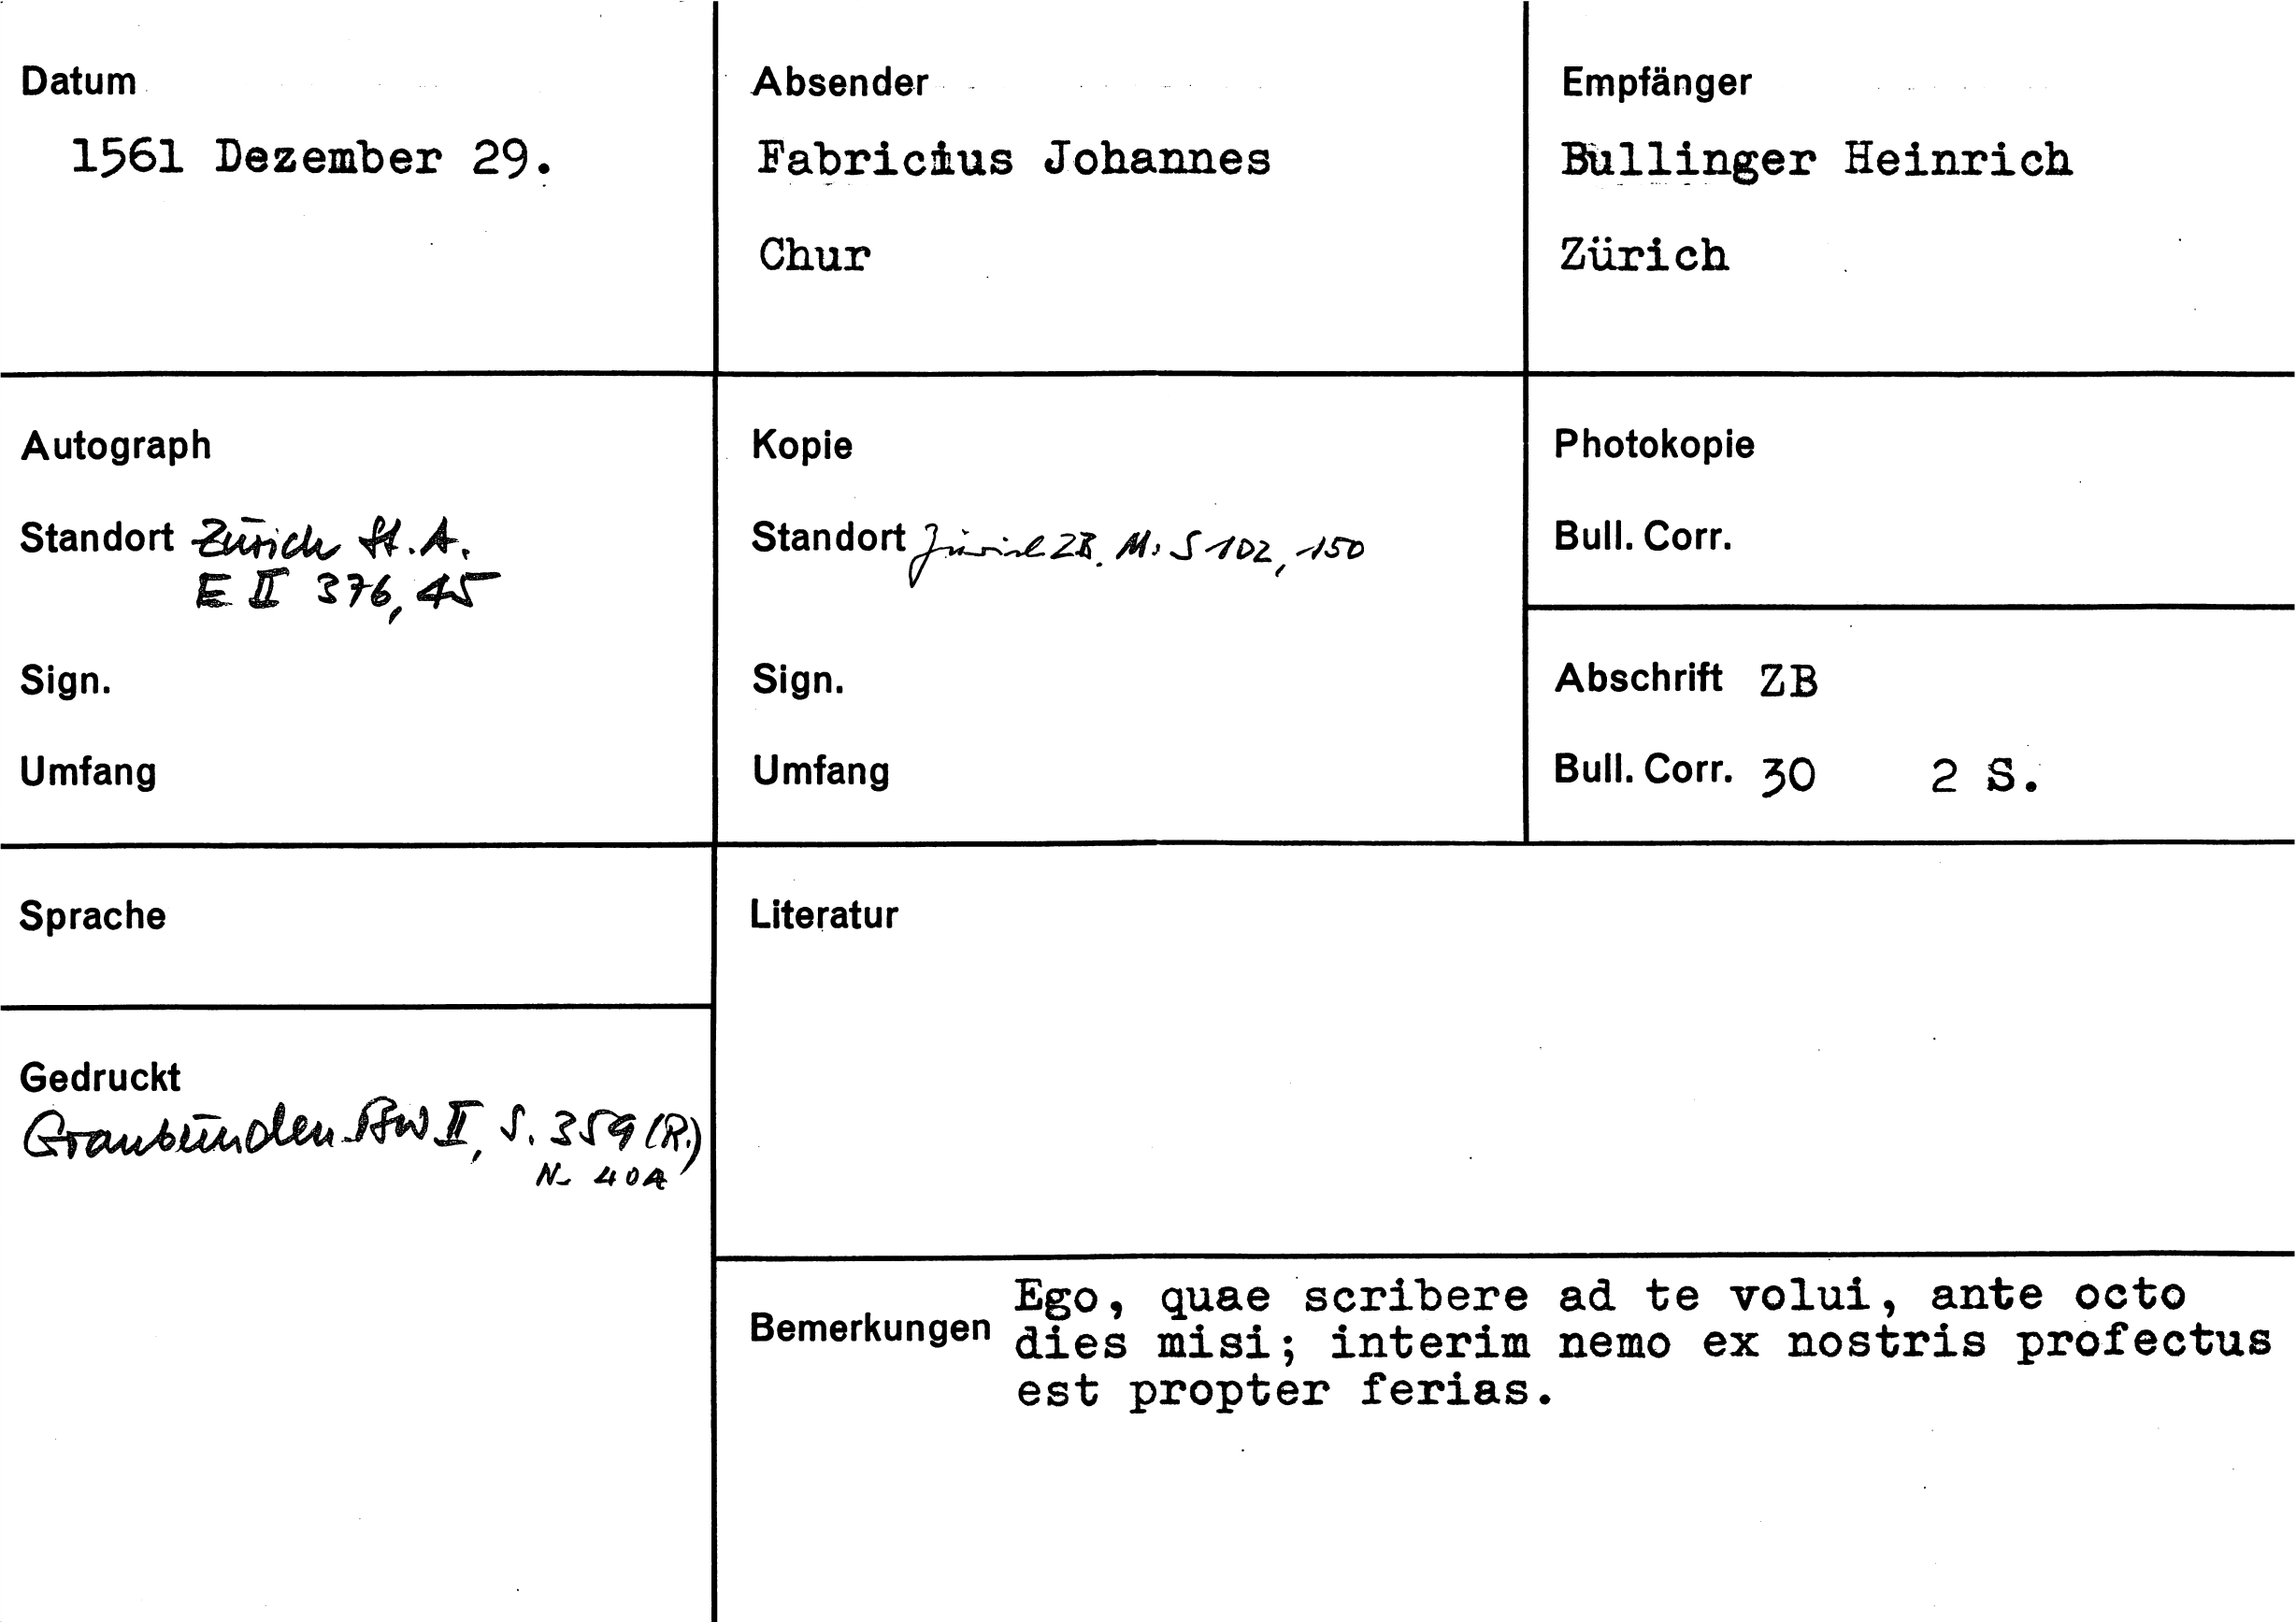 Datum
1561 Dezember 29.
Absender
Fabricius Johannes
Chur
Empfänger
Bullinger Heinrich
Zürich
Autograph
Standort Zürich St.A.
E II 376, 45
Sign.
Umfang
Kopie
Standort Zürich ZB. Ms S 102, 150
Sign.
Umfang
Photokopie
Bull. Corr.
Abschrift ZB
Bull. Corr. 30 2 S.
Sprache
Gedruckt
Graubünden BW II, S. 359 (R.)
N. 404
Literatur
Bemerkungen
Ego, quae scribere ad te volui, ante octo
dies misi; interim nemo ex nostris profectus
est propter ferias.